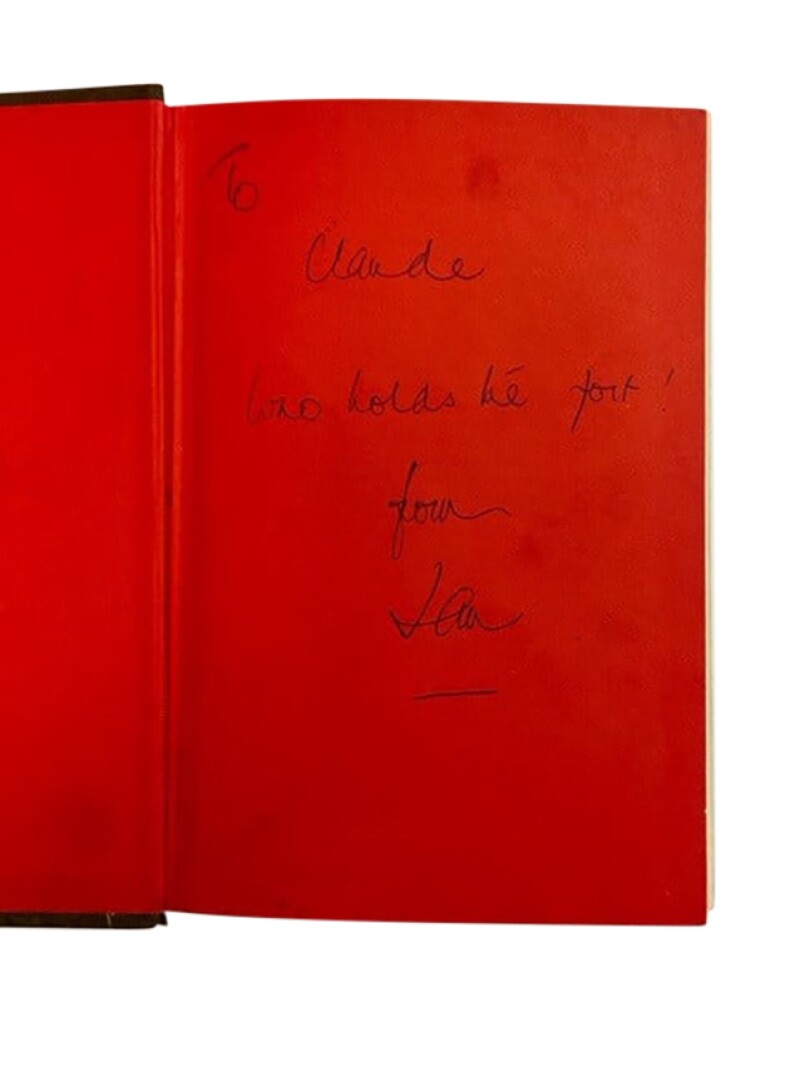 To
Claude
who holds the fort!
from
Ian